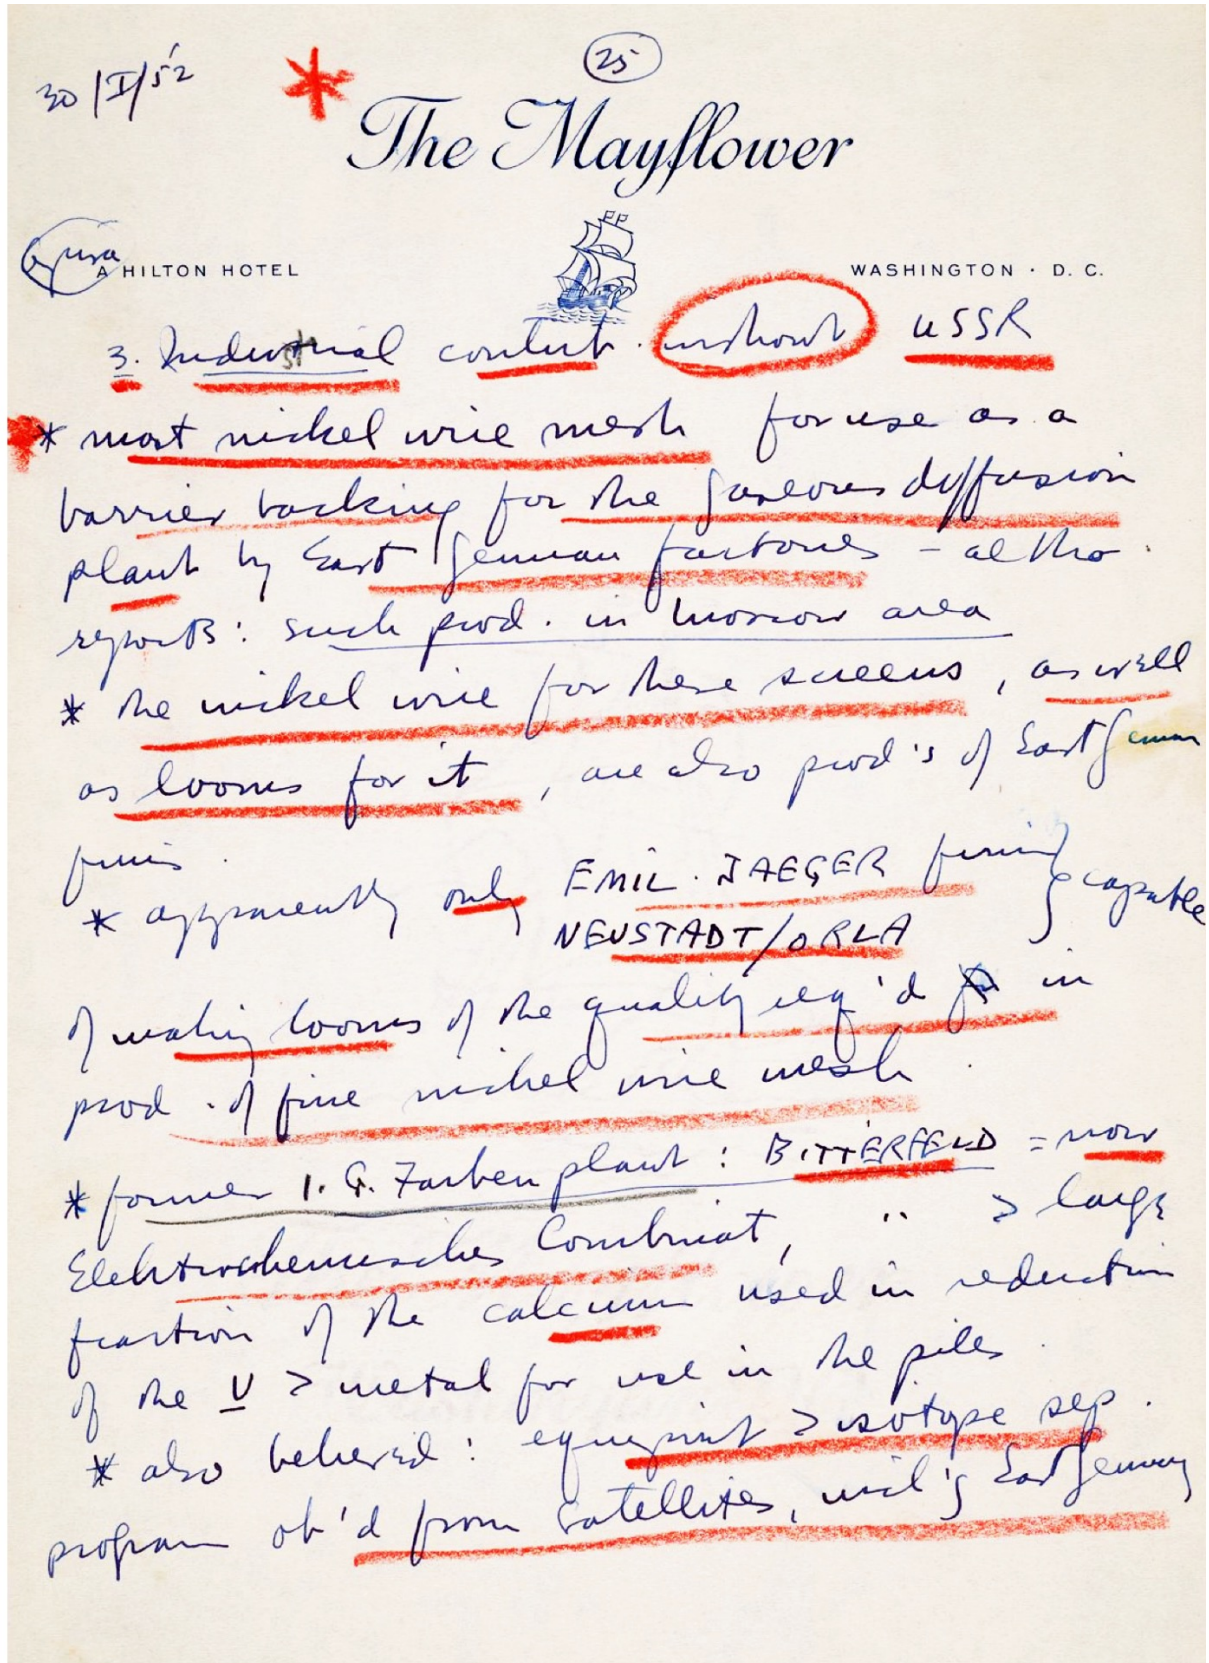 30/I/52
25
The Mayflower
A HILTON HOTEL
WASHINGTON · D. C.
3. Industrial contrib. without USSR
* most nickel wire mesh for use as a
barrier backing for the gaseous diffusion
plant by East German factories - altho
reports: such prod. in Moscow area
* the nickel wire for these screens, as well
as looms for it, are also prod's of East German
firms.
* apparently only EMIL JAEGER firm } capable
NEUSTADT/ORLA
of making looms of the quality req'd in
prod. of fine nickel wire mesh.
* former I. G. Farben plant: BITTERFELD = now
Elektrochemisches Combinat, " > large
fraction of the calcium used in reduction
of the U > metal for use in the piles.
* also believed: equipment > isotope sep.
program ob'd from satellites, incl'g East Germany